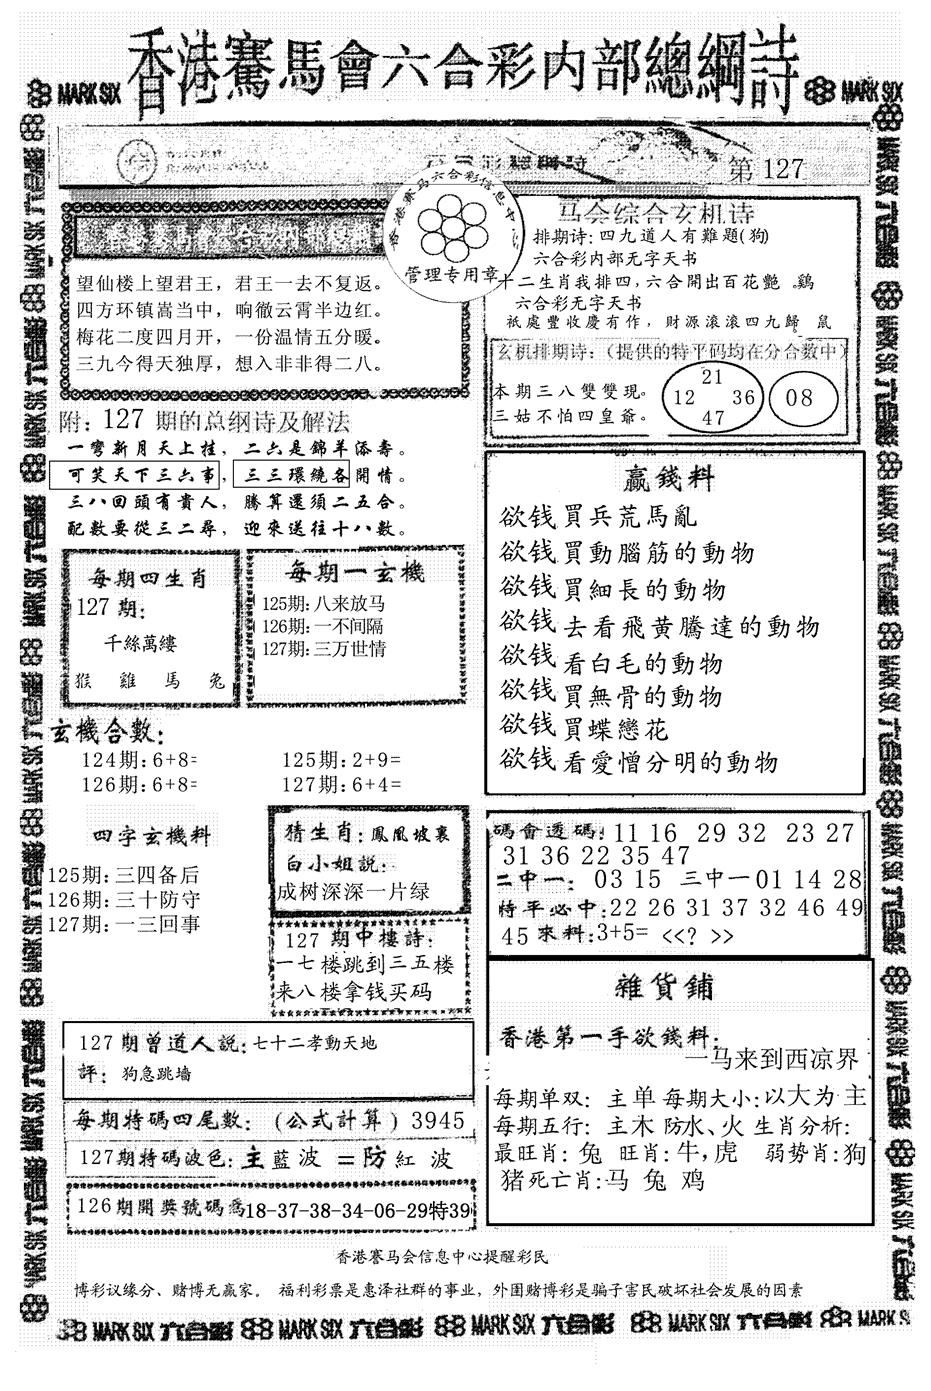 香港賽馬會六合彩内部總綱詩
MARK SIX
第 127
香港赛马六合彩信息中心
管理专用章
望仙楼上望君王，君王一去不复返。
四方环镇嵩当中，响徹云霄半边红。
梅花二度四月开，一份温情五分暖。
三九今得天独厚，想入非非得二八。
马会综合玄机诗
排期诗：四九道人有難題(狗)
六合彩内部无字天书
十二生肖我排四，六合開出百花艷 。鷄
六合彩无字天书
祇處豐收慶有作，財源滾滾四九歸 鼠
玄机排期诗：（提供的特平码均在分合数中）
本期三八雙雙現。
三姑不怕四皇爺。
21
12 36
47
08
附：127 期的总纲诗及解法
一彎新月天上挂，二六是錦羊添壽。
可笑天下三六事，三三環繞各開情。
三八回頭有貴人，勝算還須二五合。
配數要從三二尋，迎來送往十八數。
每期四生肖
127 期：
千絲萬縷
猴 雞 馬 兔
每期一玄機
125期：八来放马
126期：一不间隔
127期：三万世情
赢錢料
欲钱買兵荒馬亂
欲钱買動腦筋的動物
欲钱買細長的動物
欲钱去看飛黄騰達的動物
欲钱看白毛的動物
欲钱買無骨的動物
欲钱買蝶戀花
欲钱看愛憎分明的動物
玄機合數：
124期：6+8=
125期：2+9=
126期：6+8=
127期：6+4=
四字玄機料
125期：三四备后
126期：三十防守
127期：一三回事
猜生肖：鳳凰坡裏
白小姐説：
成树深深一片绿
127 期中樓詩：
一七楼跳到三五楼
来八楼拿钱买码
碼會透碼：11 16 29 32 23 27
31 36 22 35 47
二中一：03 15 三中一01 14 28
特平必中：22 26 31 37 32 46 49
45 來料：3+5= <<? >>
雜貨鋪
香港第一手欲錢料：
一马来到西凉界
每期单双： 主单 每期大小：以大为主
每期五行： 主木 防水、火 生肖分析：
最旺肖：兔 旺肖：牛，虎 弱势肖：狗
猪死亡肖：马 兔 鸡
127期曾道人説：七十二孝動天地
評： 狗急跳墙
每期特碼四尾數：（公式計算）3945
127期特碼波色：主藍波＝防紅波
126期開獎號碼爲18-37-38-34-06-29特39
香港赛马会信息中心提醒彩民
博彩议缘分、赌博无赢家。 福利彩票是惠泽社群的事业，外围赌博彩是骗子害民破坏社会发展的因素
MARK SIX 六合彩 MARK SIX 六合彩 MARK SIX 六合彩 MARK SIX 六合彩 MARK SIX